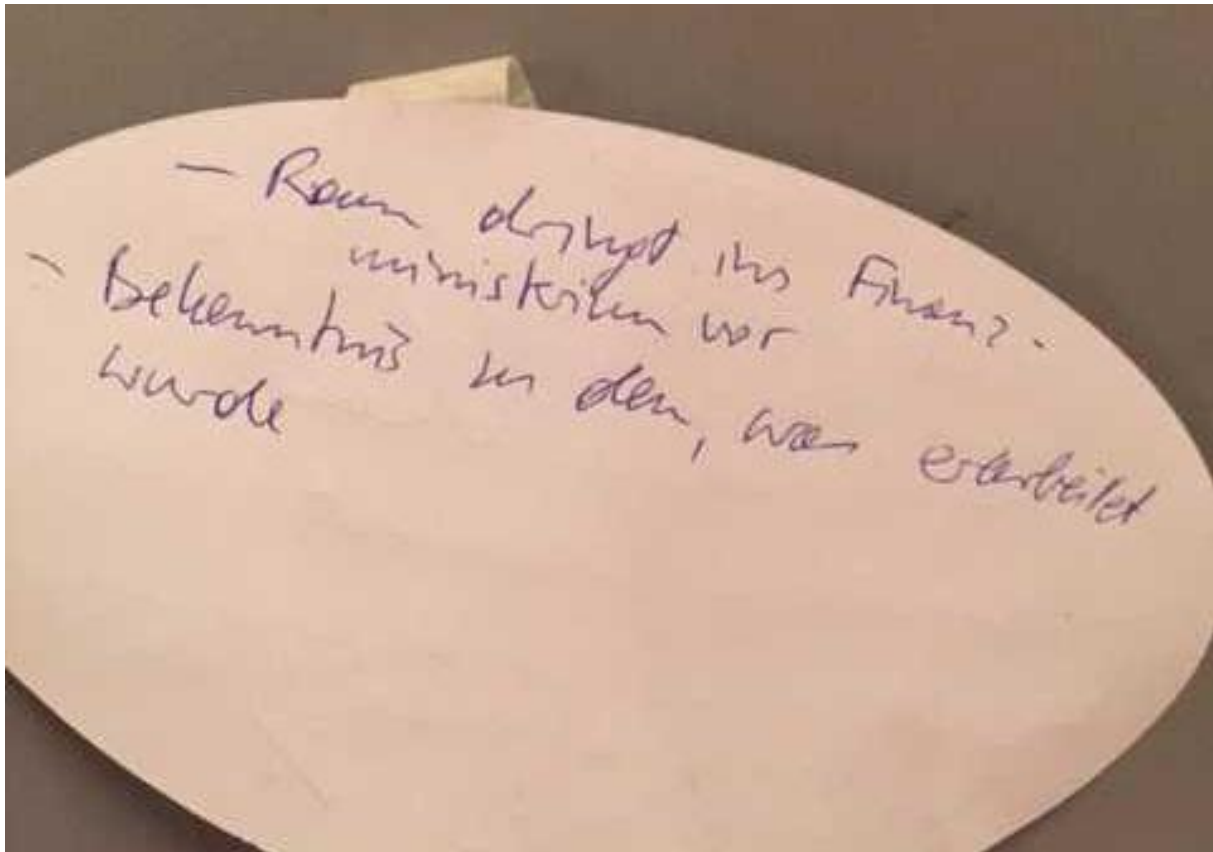 - Raum dringt ins Finanz-
ministerium vor
- Bekenntnis zu dem, was erarbeitet
wurde